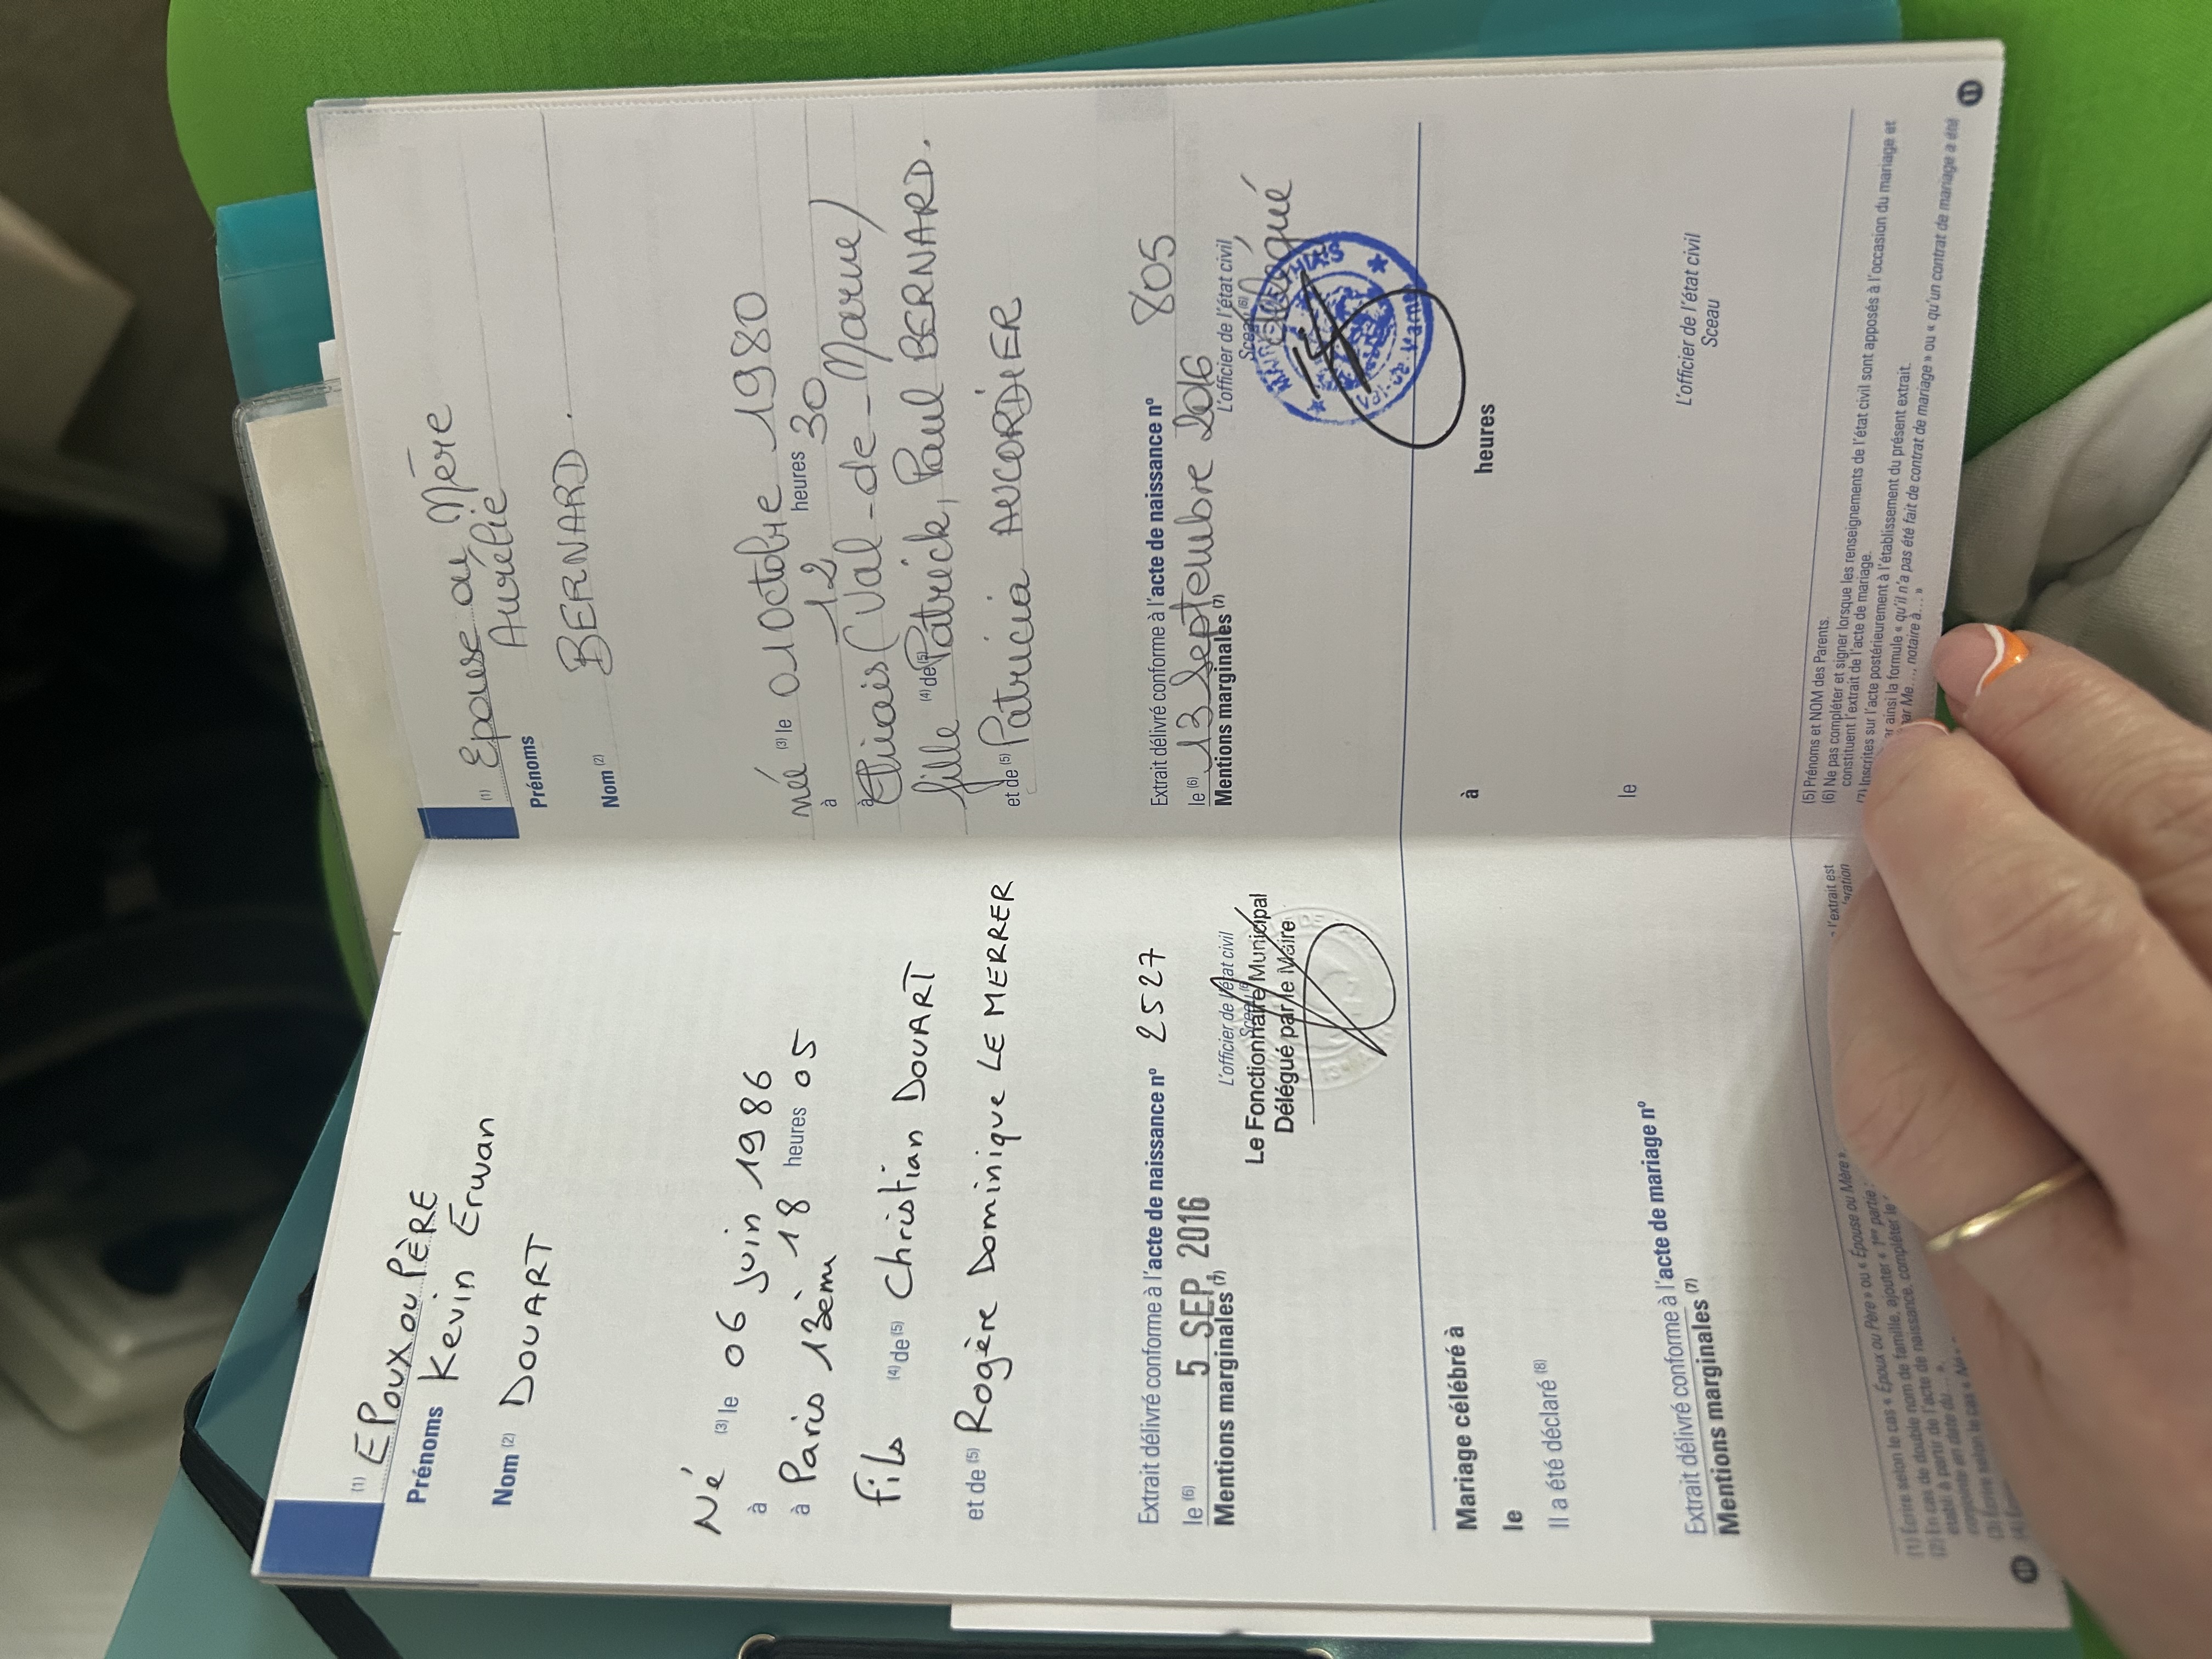 (1) EPoux ou PÈRE
Prénoms Kevin Erwan
Nom (2) DOUART
Né (3) le 06 juin 1986
à 18 heures 05
à Paris 13ème
fils (4) de (5) Christian DOUART
et de (5) Rogère Dominique LE MERRER
Extrait délivré conforme à l'acte de naissance nº 2527
le (6) 5 SEP. 2016
L'officier de l'état civil
Mentions marginales (7)
Le Fonctionnaire Municipal
Délégué par le Maire
Mariage célébré à
le
Il a été déclaré (8)
Extrait délivré conforme à l'acte de mariage nº
Mentions marginales (7)
(1) Écrire selon le cas « Époux ou Père » ou « Épouse ou Mère ».
(2) En cas de double nom de famille, ajouter « 1re partie
établi à partir de l'acte de naissance, compléter le
(1) Epouse ou Mère
Prénoms Aurélie
Nom (2) BERNARD.
née (3) le 01 Octobre 1980
à 12 heures 30
à Thiais (Val-de-Marne)
fille (4) de (5) Patrick, Paul BERNARD.
et de (5) Patricia ANCORDIER
Extrait délivré conforme à l'acte de naissance nº 805
le (6) 13 Septembre 2016
L'officier de l'état civil
Sceau (6)
délégué
Mentions marginales (7)
à heures
le
L'officier de l'état civil
Sceau
(5) Prénoms et NOM des Parents.
(6) Ne pas compléter et signer lorsque les renseignements de l'état civil sont apposés à l'occasion du mariage et
constituent l'extrait de l'acte de mariage.
(7) Inscrites sur l'acte postérieurement à l'établissement du présent extrait.
ainsi la formule « qu'il n'a pas été fait de contrat de mariage » ou « qu'un contrat de mariage a été
par Me..., notaire à... »
11